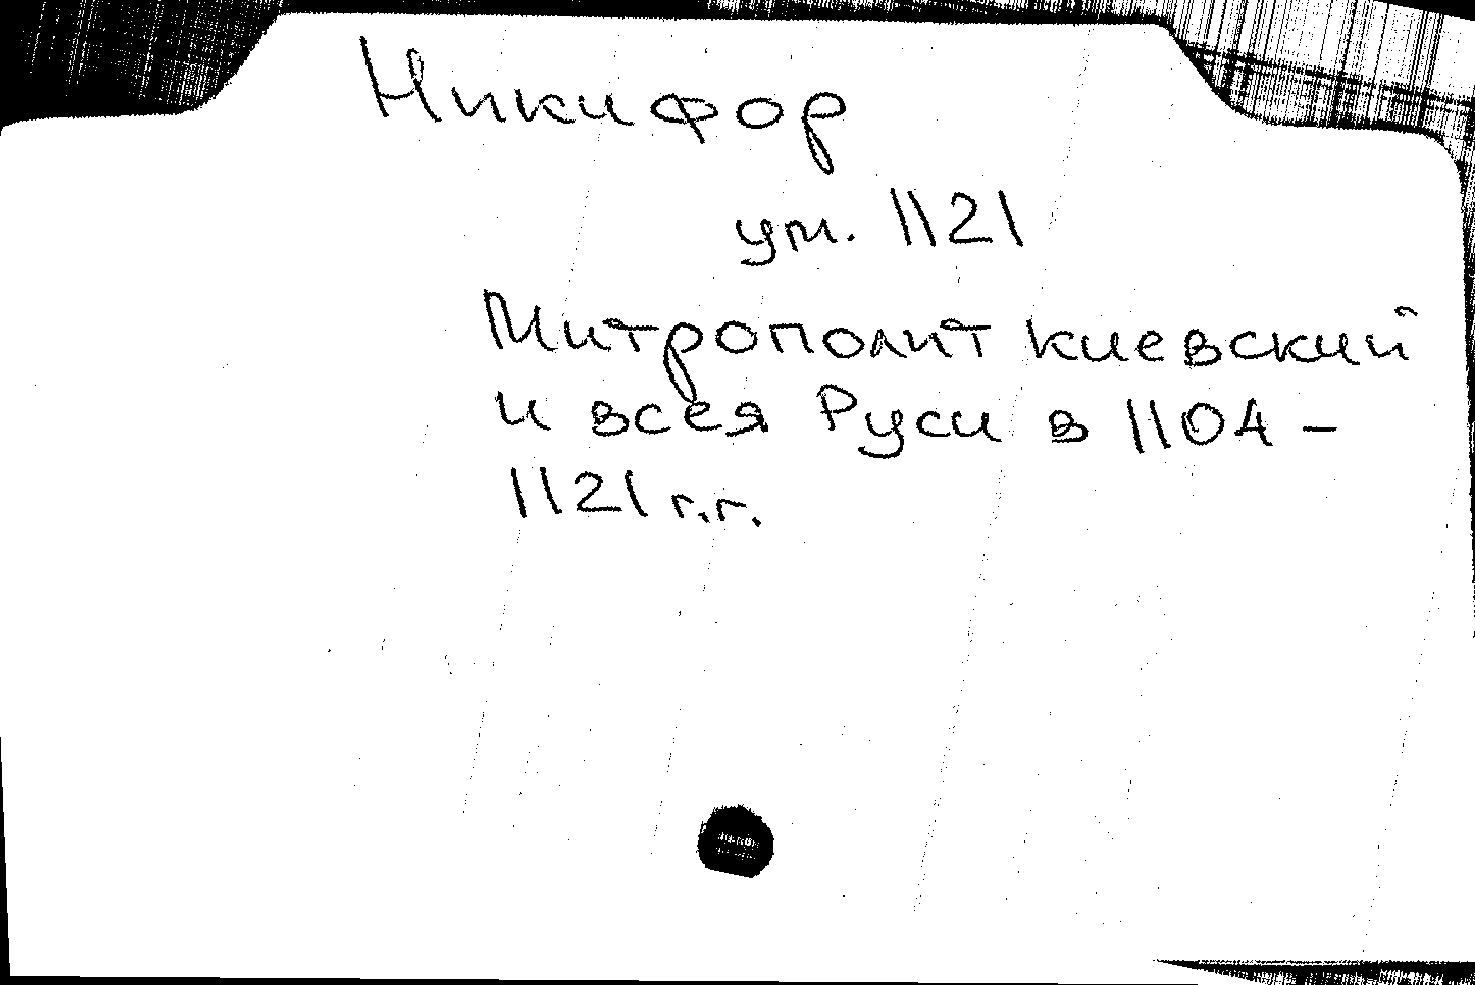 Никифор
ум. 1121
Митрополит киевский
и всея Руси в 1104-
1121 г.г.